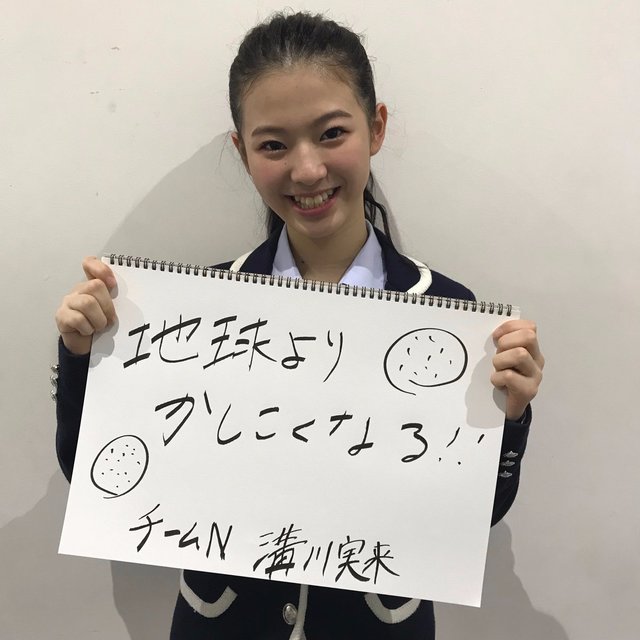 地球より
かしこくなる!!
チームN 溝川実来